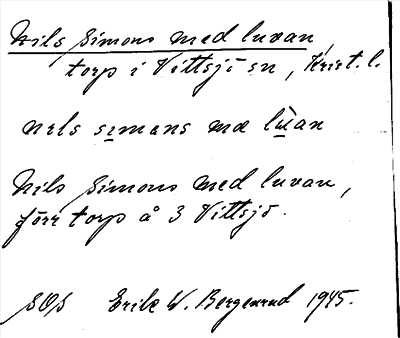 Nils Simons med luvan
torp i Vittsjö sn, Krist. l.
nels semans mæ luan
Nils Simons med luvan,
förr torp å 3 Vittsjö.
SOS Erik W. Bergenrud 1945.